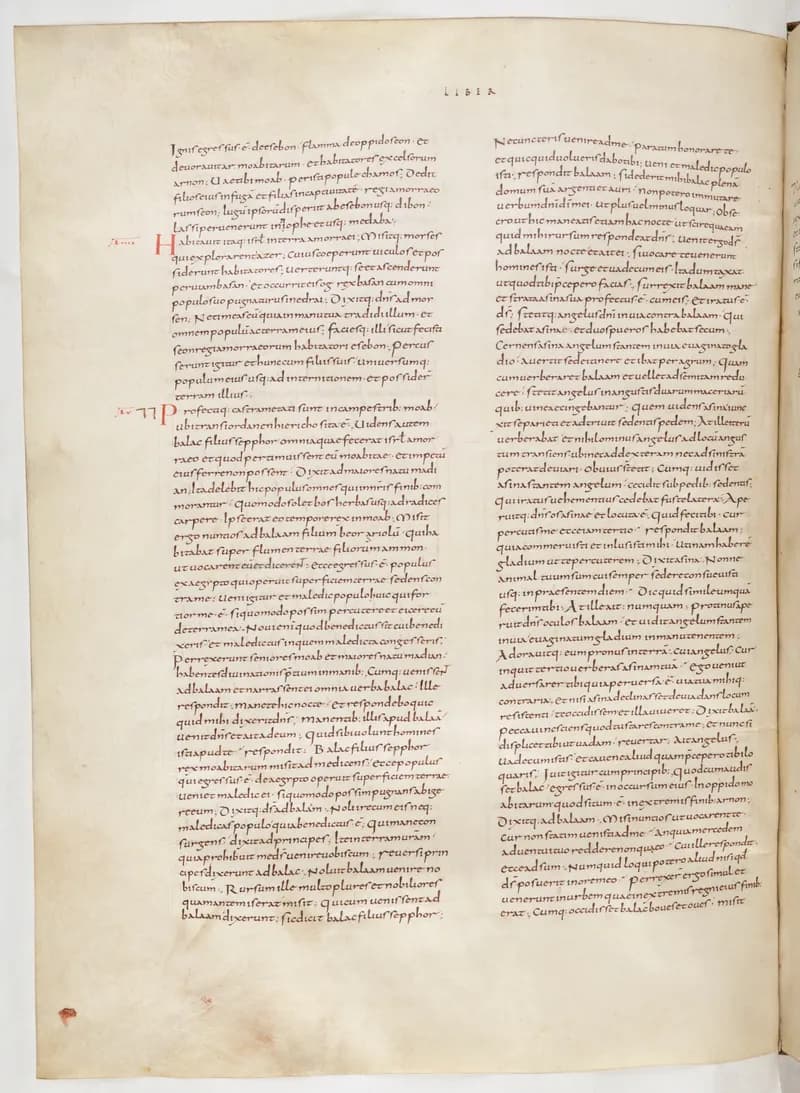 LIBER
Ignis egressus ē de esebon · flamma de oppido seon · et
devoravit ar moabitarum · et habitatores excelsorum
arnon; Vae tibi moab · peristi popule chamos; Dedit
filios eius in fugā et filias in captivitatē · regi amorraeo
rum seon; Iugū ipsorū disperiit ab esebon usq; dibon ·
Lassi pervenerunt in iophe et usq; medaba;
Habitavit itaq; isrl in terra amorraei; Misitq; moyses
qui explorarent azer; Cuius coeperunt viculos et pos
siderunt habitatores; Verteruntq; se et ascenderunt
per viam basan · Et occurrit eis og rex basan cum omni
populo suo pugnaturus in edrai; Dixitq; dns ad moy
sen; Ne timeas eū quia in manu tua tradidi illum · et
omnem populū ac terram eius; faciesq; illi sicut fecisti
seon regi amorraeorum habitatori esebon; Percus
serunt igitur et hunc cum filiis suis · universumq;
populum eius usq; ad internitionem · et possider̄
terram illius;
Profectiq; castrametati sunt in campestrib; moab ·
ubi trans iordanen hiericho sita ē; Videns autem
balac filius sepphor omnia quae fecerat isrl amor
raeo et quod pertimuissent eū moabitae · et impetū
eius ferre non possent · Dixit ad maiores natu madi
an; Ita delebit hic populus omnes qui in nris finib; com
morantur · Quomodo solet bos herbas usq; ad radices
carpere; Ipse erat eo tempore rex in moab; Misit
ergo nuntios ad balaam filium beor ariolū · qui ha
bitabat super flumen terrae filiorum ammon ·
ut vocarent eū et dicerent; Ecce egressus ē populus
ex aegypto qui operuit superficiem terrae sedens con
tra me; Veni igitur et maledic populo huic qui for
tior me ē · si quo modo possim percutere et eicere eū
de terra mea; Novi enī quod benedictus sit cui benedi
xeris · et maledictus in quem maledicta congesseris;
Perrexerunt seniores moab et maiores natu madian ·
habentes divinationis p̄tium in manib; Cumq; venissent
ad balaam et narrassent ei omnia verba balac · Ille
respondit; Manete hic nocte · et respondebo quic
quid mihi dixerit dns; Manentib; illis apud balaā ·
venit dns et ait ad eum; Quid sibi volunt homines
isti apud te · respondit; Balac filius sepphor
rex moabitarum misit ad me dicens; Ecce populus
qui egressus ē · de aegypto operuit superficiem terrae ·
veni et maledic ei · si quo modo possim pugnans abige
re eum; Dixitq; ds ad balaam; Noli ire cum eis neq;
maledicas populo quia benedictus ē; Qui mane con
surgens · dixit ad principes; Ite in terram vrām ·
quia prohibuit me dns venire vobiscum; reversi prin
cipes dixerunt ad balac; Noluit balaam venire no
biscum; Rursum ille multo plures et nobiliores
quam ante miserat misit; Qui cum venissent ad
balaam dixerunt; Sic dicit balac filius sepphor;
Ne cuncteris venire ad me · paratum honorare te ·
et quicquid volueris dabo tibi; veni et maledic populo
isti; respondit balaam; Si dederit mihi balac plenā
domum suā argenti et auri · non potero immutare
verbum dnī dī mei · ut plus vel minus loquar; Obse
cro ut hic maneatis etiam hac nocte · ut scire queam
quid mihi rursum respondeat dns; Venit ergo ds
ad balaam nocte et ait ei; Si vocare te venerunt
homines isti · surge et vade cum eis · Ita dumtaxat
ut quod tibi p̄cepero facias; Surrexit balaam mane ·
et strata asina sua profectus ē cum eis; Et iratus ē
ds; Stetitq; angelus dnī in via contra balaam · Qui
sedebat asinae · et duos pueros habebat secum ·
Cernens asina angelum stantem in via evaginato gla
dio · Avertit se de itinere et ibat per agrum; Quam
cum verberaret balaam et vellet ad semitam redu
cere · Stetit angelus in angustiis duarum maceriarū
quib; vineae cingebantur; Quem videns asina iunc
xit se parieti et adtrivit sedentis pedem; At ille iterū
verberabat · Et nihilominus angelus ad locū angus
tum transiens · ubi nec ad dexteram nec ad sinistrā
poterat deviari · Obvius stetit; Cumq; vidisset
asina stantem angelum · Cecidit sub pedib; sedentis;
Qui iratus vehementius cedebat fuste latera; Ape
ruitq; dns os asinae et locuta ē; Quid feci tibi · cur
percutis me · ecce iam tertio · respondit balaam;
quia commeruisti et inlusisti mihi · Utinam haberē
gladium ut te percuterem; Dixit asina; Nonne
animal tuum sum cui semper sedere consuevisti
usq; in praesentem diem · Dic quid simile umquā
fecerim tibi; At ille ait; numquam; Protinus ape
ruit dns oculos balaam · et vidit angelum stantem
in via evaginatum gladium in manu tenentem;
Adoravitq; eum pronus in terrā; Cui angelus; Cur
inquit tertio verberas asinam tuā · Ego veni ut
adversarer tibi quia perversa ē via tua mihiq;
contraria; et nisi asina declinasset de via dans locum
resistenti · te occidissem et illa viveret; Dixit balaā;
Peccavi nesciens quod tu stares contra me; et nunc si
displicet tibi ut vadam · revertar; Ait angelus;
Vade cum istis · et cave ne aliud quam p̄cepero tibi lo
quaris; Ivit igitur cum principib; Quod cum audis
set balac · egressus ē in occursum eius · In oppido mo
abitarum quod situm ē in extremis finib; arnon;
Dixitq; ad balaam; Misi nuntios ut vocarent te ·
Cur non statim venisti ad me · An quia mercedem
adventui tuo reddere non queo · Cui ille respondit;
Ecce adsum; Numquid loqui potero aliud nisi qd
ds posuerit in ore meo · Perrexer̄ ergo simul · et
venerunt in urbem quae in extremis regni eius finib;
erat; Cumq; occidisset balac boves et oves · misit